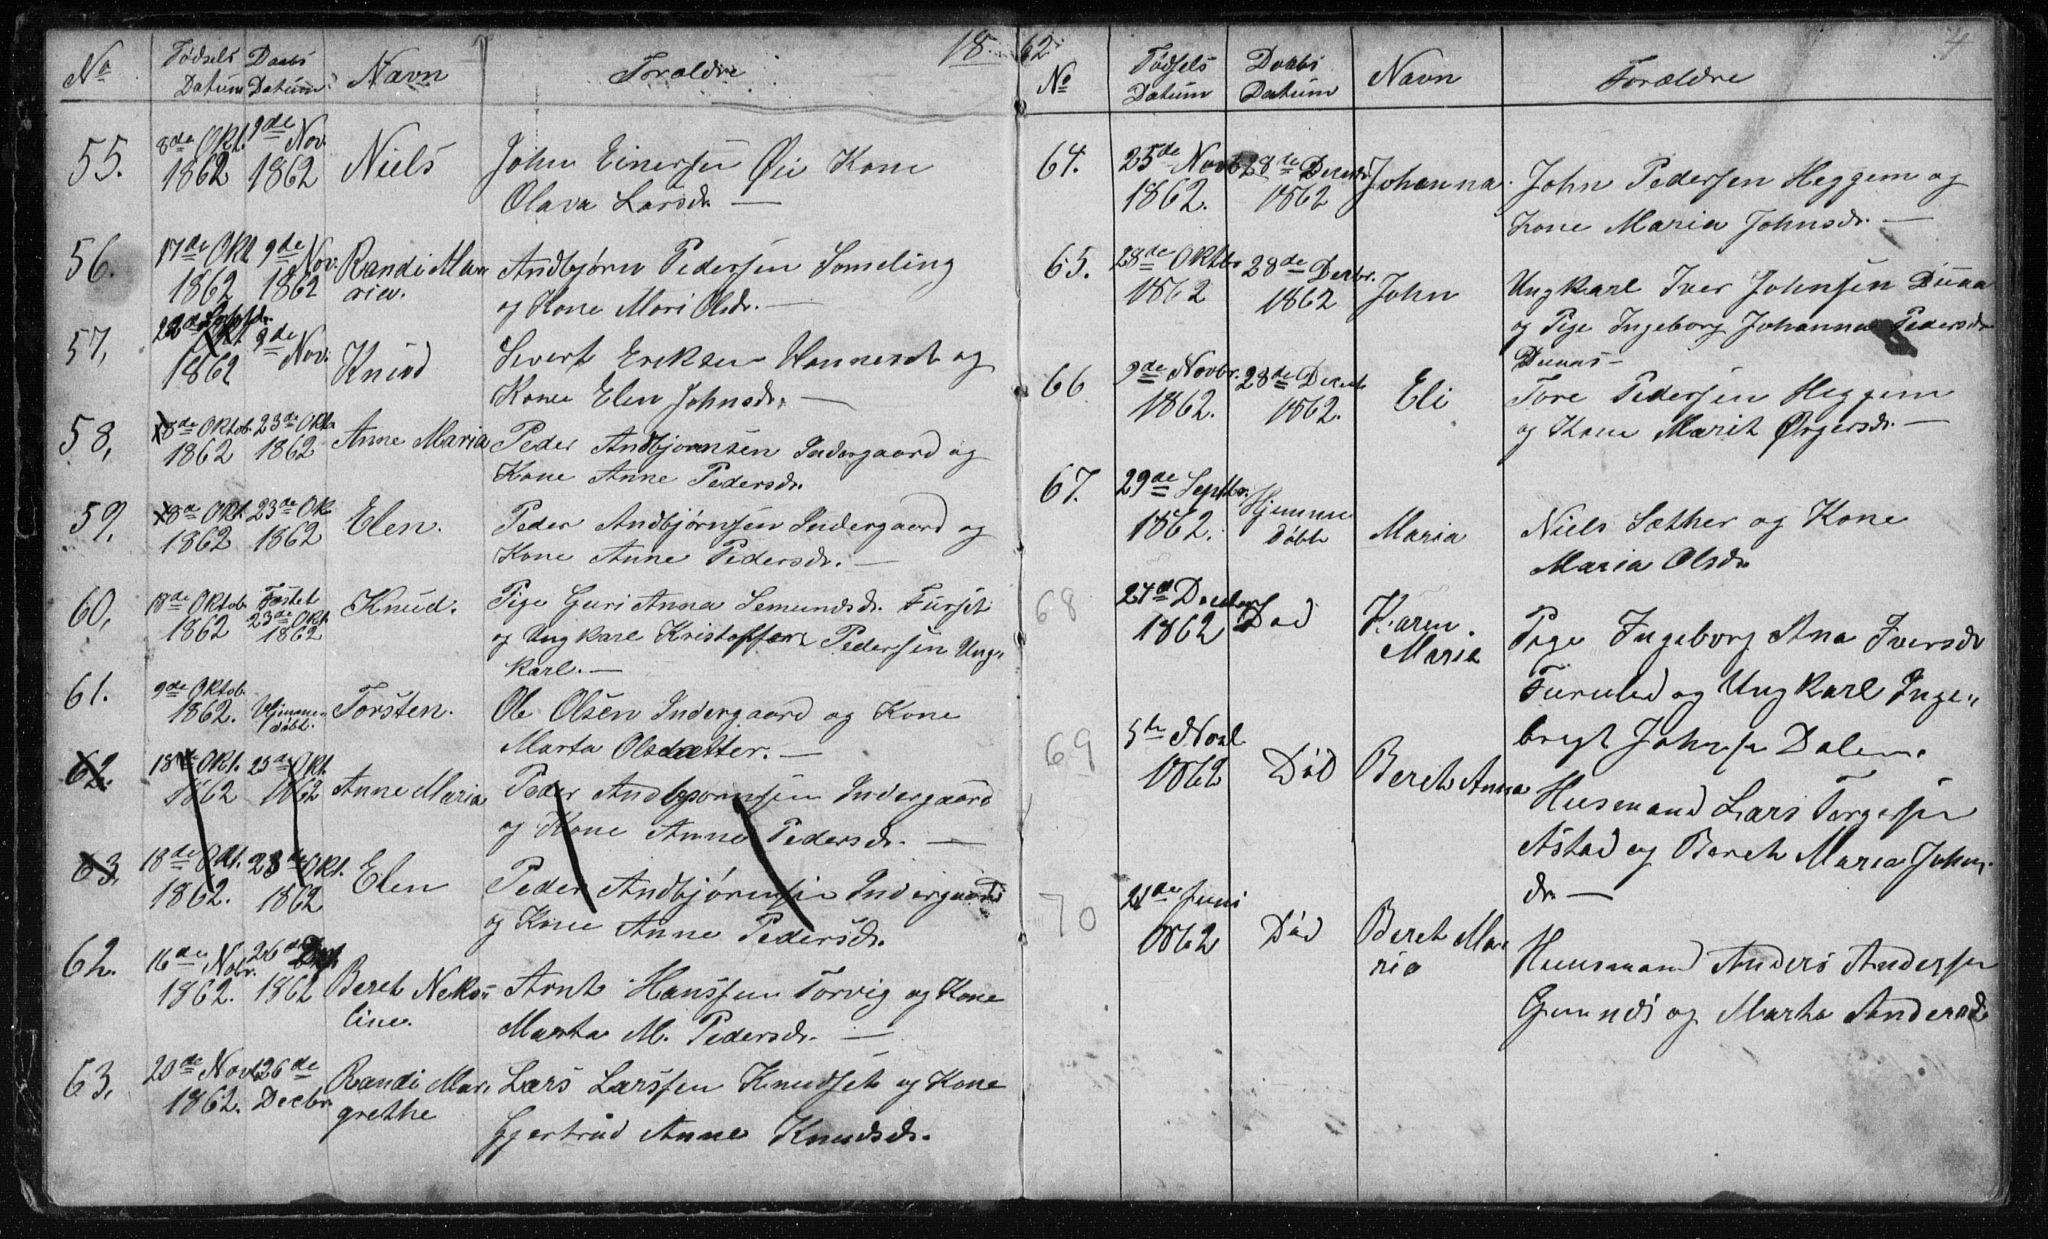 18 62
No Fødsels Datum Daabs Datum Navn Forældre
55. 8de Okt. 1862 9de Nov. 1862 Niels John Einersen Øie Kone
Olava Larsdr. —
56. 17de Okt 1862 9de Nov. 1862 Randi Maria. Andbjørn Pedersen Someling
og Kone Mari Olsdr. —
57, 1862 9de Nov. Knud Sivert Eriksen og
Kone Elen Johnsdr. —
58, 18de Oktob. 1862 23de Okt. 1862 Anne Maria Peder Andbjørnsen Indergaard og
Kone Anne Pedersdr.
59, 18de Okt. 1862 23de Ok 1862 Elen. Peder Andbjørnsen Indergaard og
Kone Anne Pedersdr. —
60, 18de Oktob. 1862 23de Okt. 1862 Knud. Pige Guri Anna Semundsdr. Furset
og Ungkarl Kristoffer Pedersen Ung-
karl. —
61. 9de Oktob. 1862. Hjemme døbt. Torsten. Ole Olsen Indergaard og Kone
Marta Olsdatter. —
62. 18de Okt. 1862 23de Okt. 1862 Anne Maria Peder Andbjørnsen Indergaard
og Kone Anne Pedersdr. —
63, 18de Okt. 1862. 23de Okt. 1862 Elen Peder Andbjørnsen Indergaard
og Kone Anne Pedersdr.
62. 16de Nobr. 1862. 26de 1862 Beret Nekoline. Arnt Hanssen Torvig og Kone
Marta M. Pedersdr. —
63, 20de Novb 1862. 26de Decbr. Randi Margrethe Lars Larssen Knudset og Kone
Gjertrud Anne Knudsdr.
No Fødsels Datum Daabs Datum Navn Forældre
64. 25de Novb 1862. 28de Decmbr 1862 Johanna. John Pedersen Heggem og
Kone Maria Johnsdr. —
65. 28de Oktbr 1862 28de Decbr. 1862 John Ungkarl Iver Johnsen Duna
og Pige Ingeborg Johanna Pedersdr
Dunas —
66 9de Novbr. 1862. 28de Decmb 1862. Eli Tore Pedersen Heggem
og Kone Marit Ørgersdr. —
67. 29de Septbr. 1862. Hjemme døbt Maria Niels Sæther og Kone
Maria Olsdr.
68 27de 1862 Død Karen Maria Pige Ingeborg Ana Iversdr
og Ungkarl Inge-
brigt Johnsen Dalen.
69 5te Novb. 1862 Død Beret Anna Husmand Lars Torgersen
Astad og Beret Maria Johns-
dr —
70 21de Juni 1862 Død Beret Maria Huusmand Anders Andersen
og Marta Andersdr